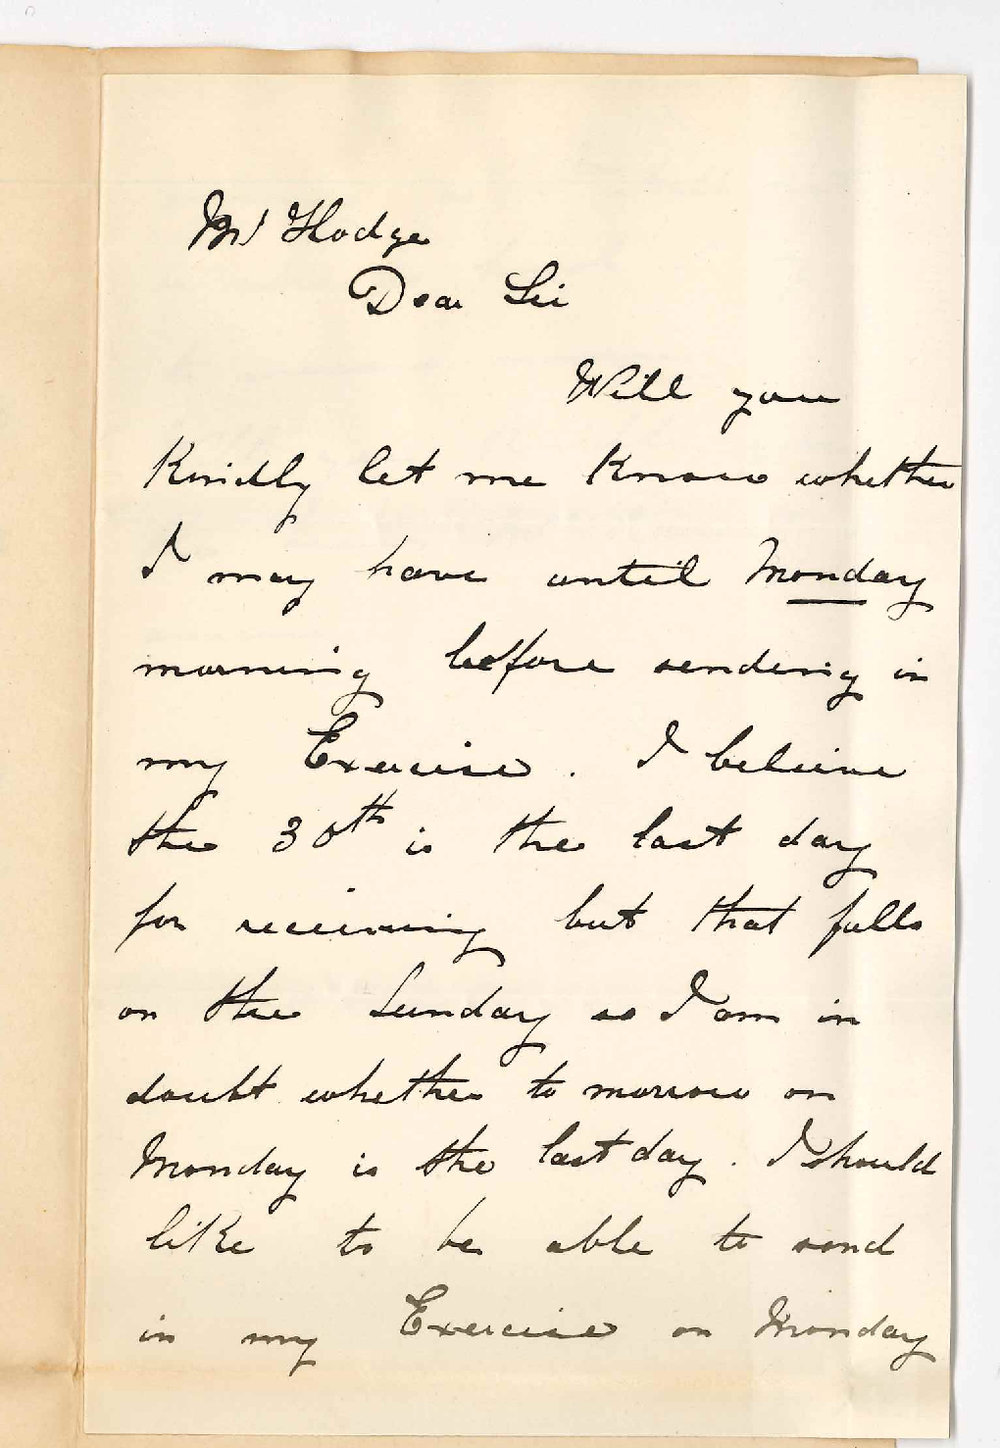 Mr Hodge
Dear Sir
Will you
Kindly let me Know whether
I may have until Monday
morning before sending in
my Exercise. I believe
the 30th is the last day
for receiving but that falls
on the Sunday so I am in
doubt whether to morrow or
Monday is the last day. I should
like to be able to send
in my Exercise on Monday